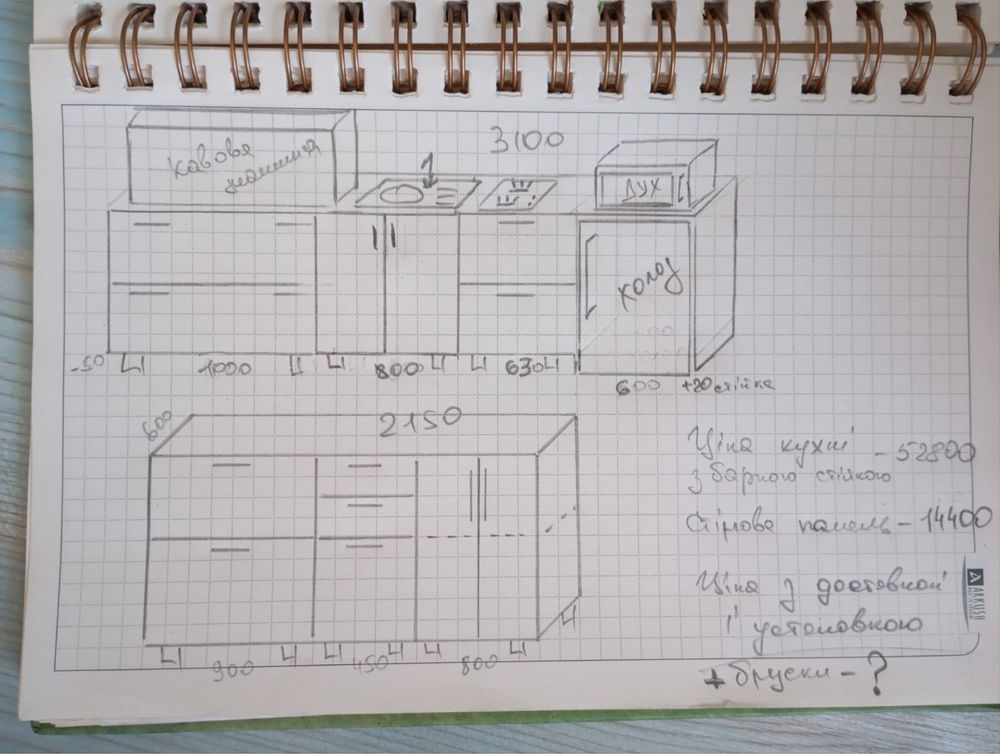 3100
кавова
машина
ДУХ
холод
-50 1000 800 630 600 +20 стійка
600 2150
Ціна кухні - 52800
з барною стійкою
Стінова панель - 14400
Ціна з доставкой
і установкою
+ бруски - ?
900 450 800
ARKUSH